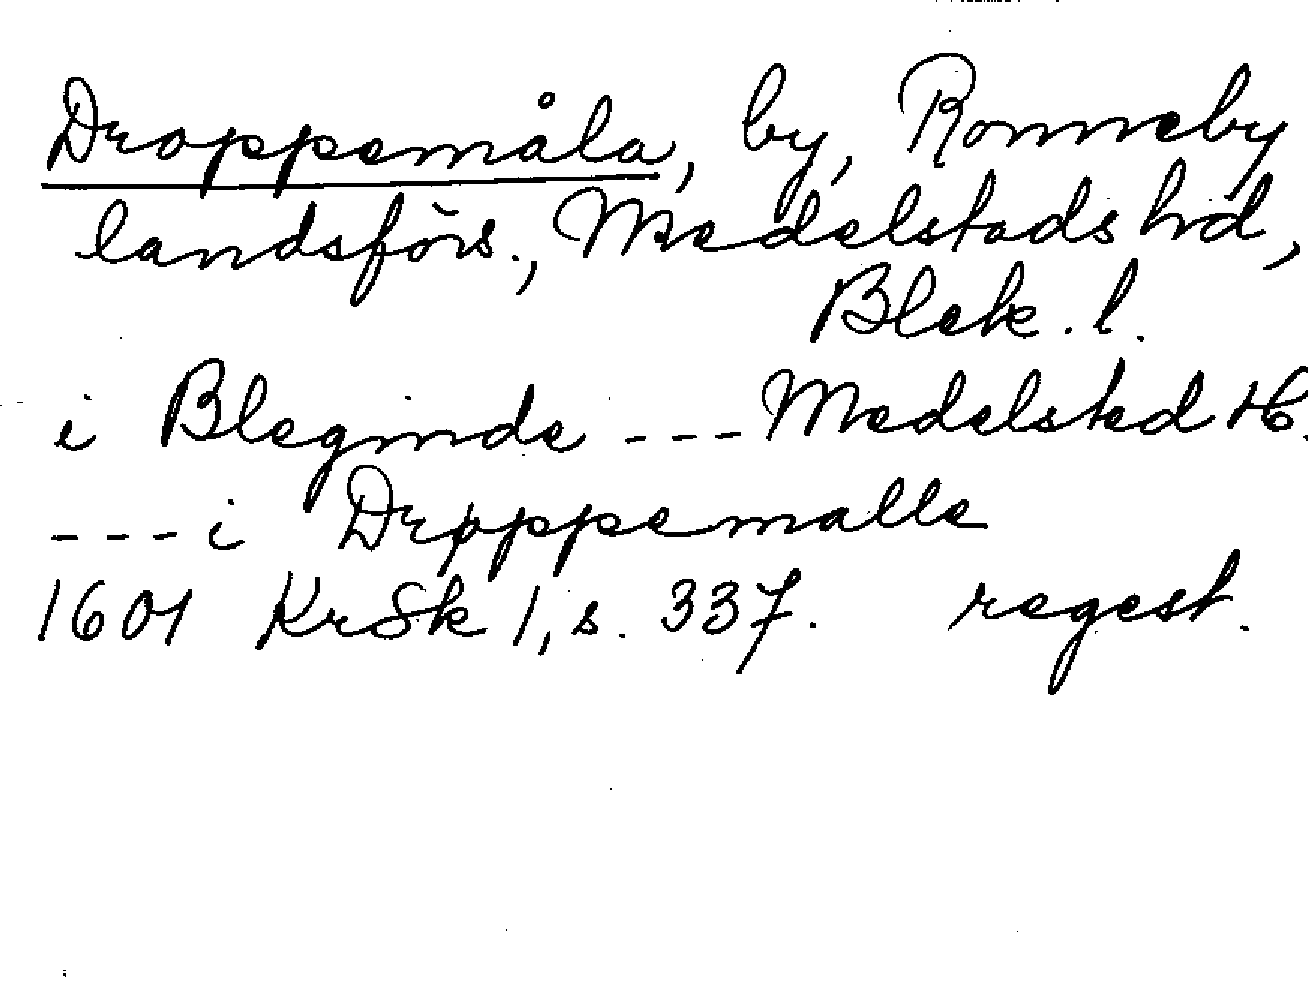 Droppemåla, by, Ronneby
landsförs., Medelstads hd,
Blek. l.
i Bleginde --- Medelsted H.
--- i Drøppemalle
1601 KrSk 1, s. 337. regest.